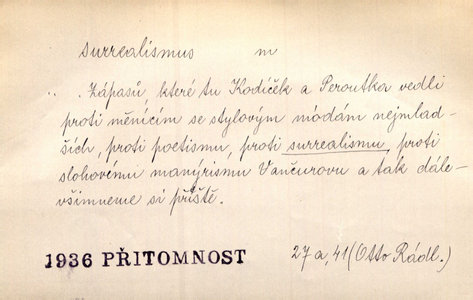 surrealismus m
. . Zápasů, které tu Kodíček a Peroutka vedli
proti měnícím se stylovým módám nejmlad-
ších, proti poetismu, proti surrealismu, proti
slohovému manýrismu Vančurovu a tak dále-
všimneme si příště.
1936 PŘITOMNOST 27a, 41 (Otto Rádl.)